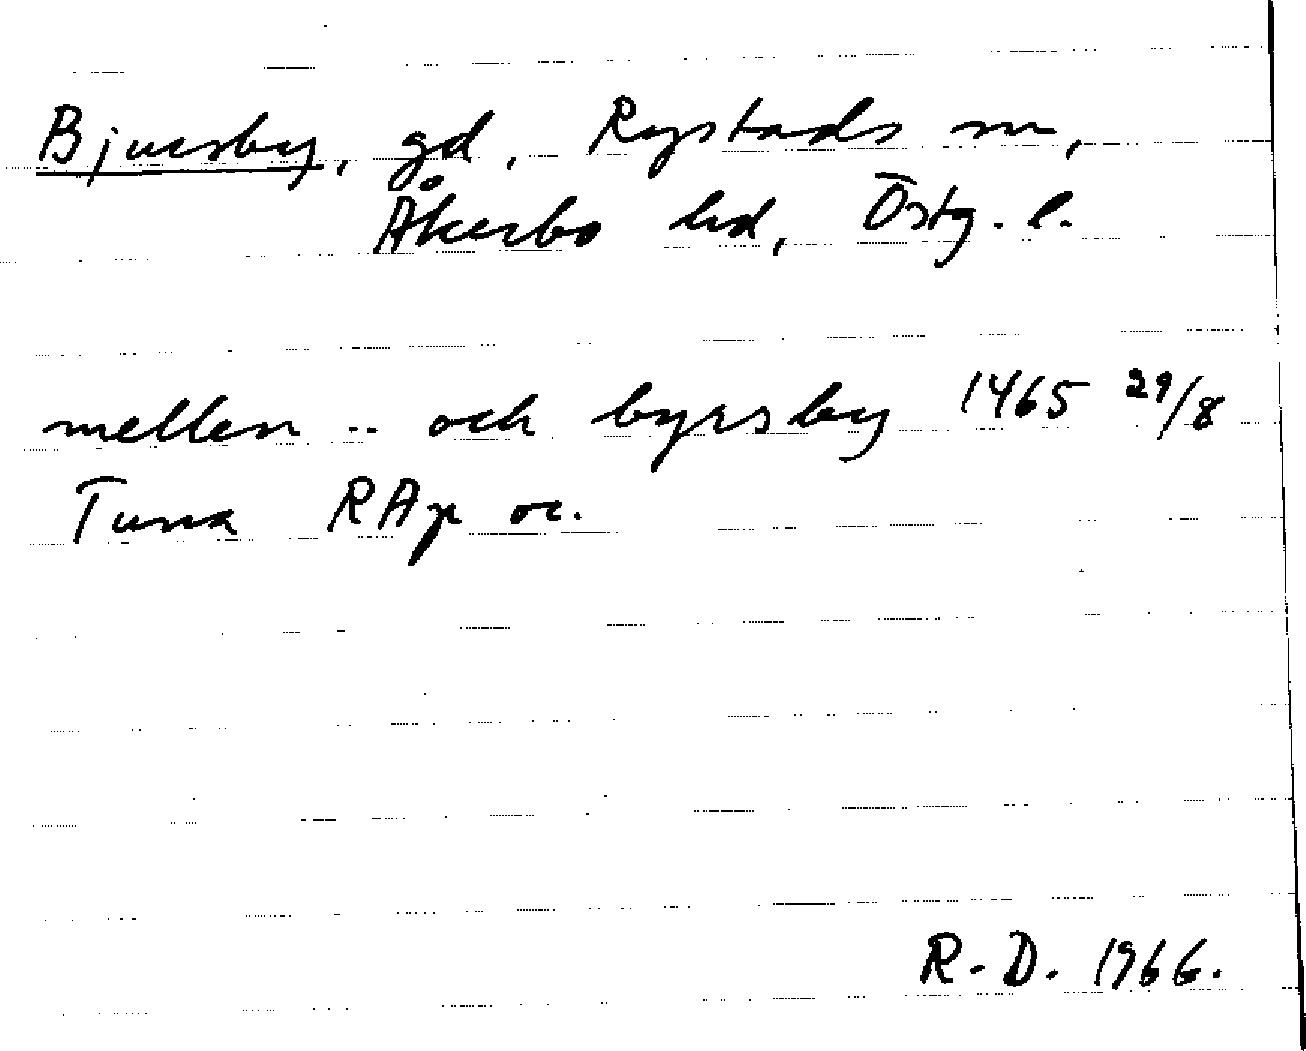 Bjuersby, gd, Rystads sn,
Åkerbo hd, Östg. l.
mellen .. och byrsby 1465 29/8
Tuna RAp or.
R-D. 1966.